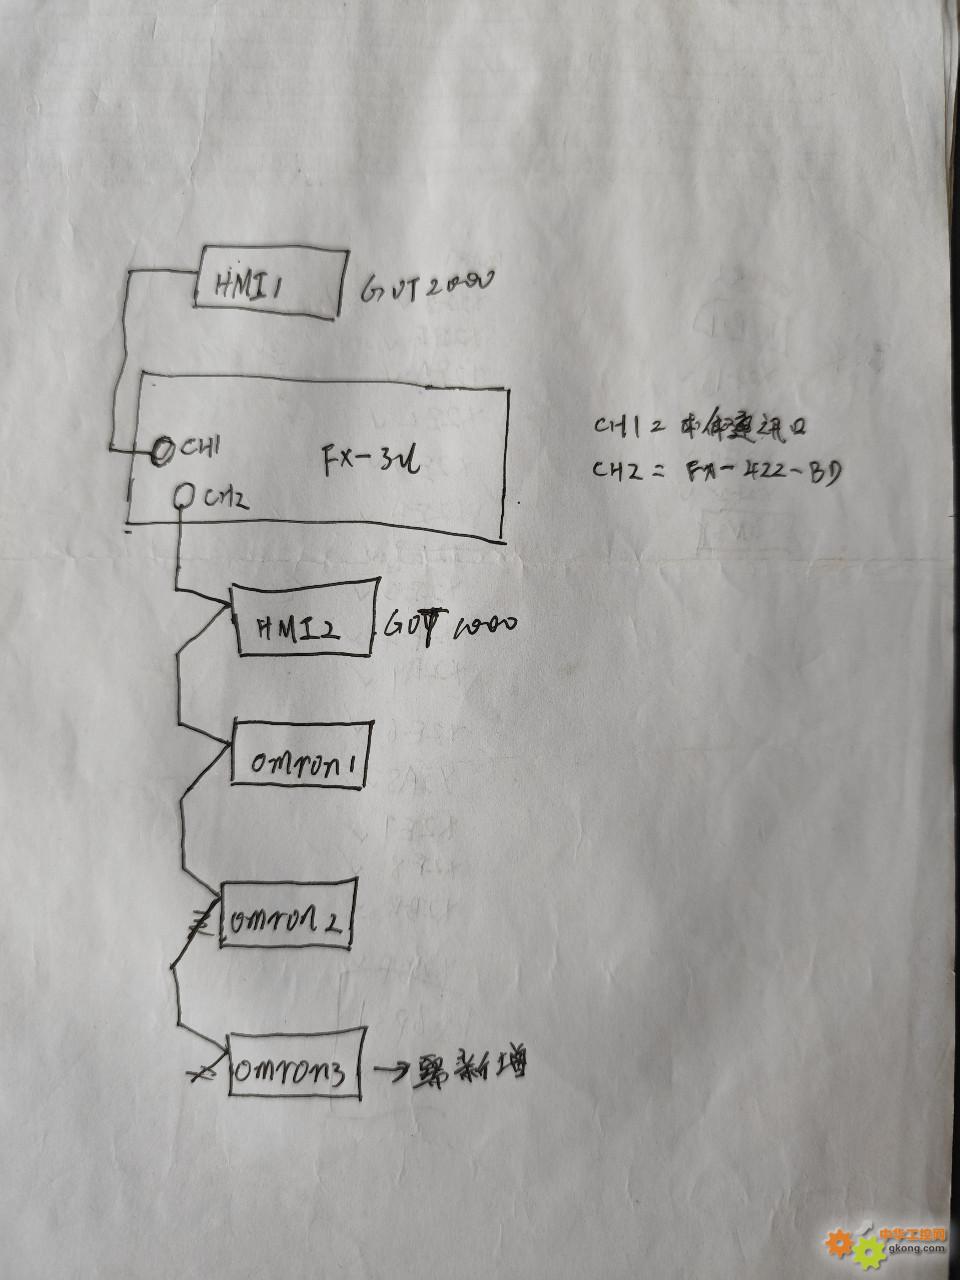 HMI1
GOT2000
CH1
FX-3U
CH2
CH1=本体通讯口
CH2=FX-422-BD
HMI2
GOT1000
omron1
omron2
omron3
→需新增
中华工控网
gkong.com